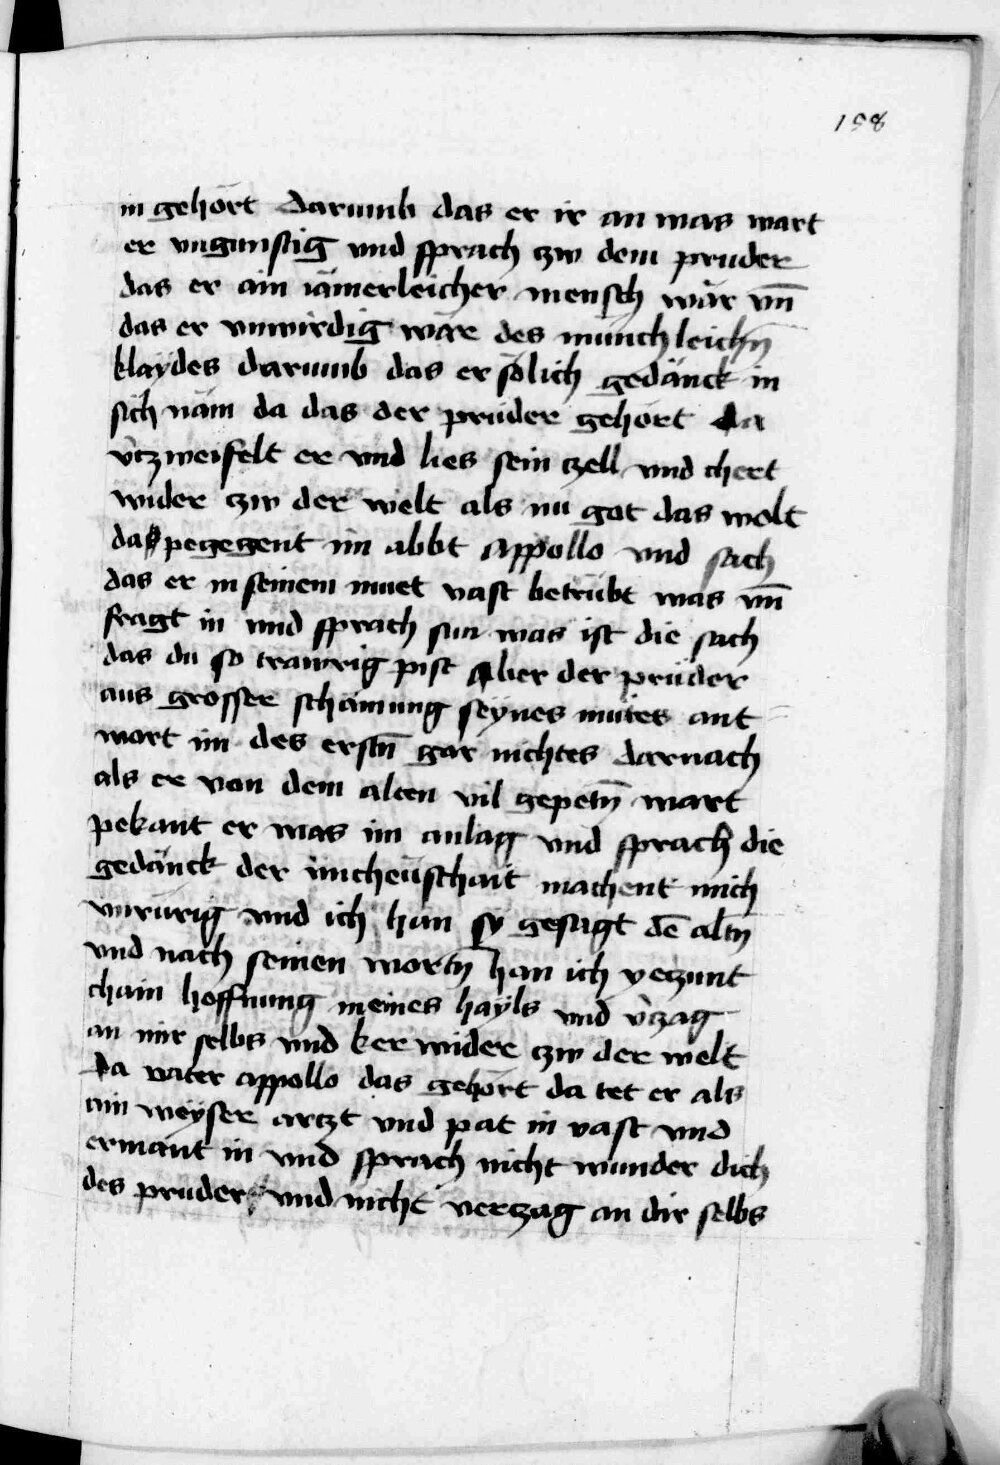 198
in gehört darumb das er ir an was wart
er vngunstig vnd sprach czw dem pruder
das er ain iämerleicher mensch wär vn̄
das er vnwirdig wäre des münchleichn̄
klaydes darumb das er sölich gedänck in
sich näm da das der prüder gehört da
v̉czweifelt er vnd lies sein czell vnd chert
wider czw der welt als nu got das wolt
da pegegent im abbt Appollo vnd sach
das er in seinem muet vast betrübt was vn̄
fragt in vnd sprach sun was ist die sach
das du so trawrig pist Aber der prüder
aus grosser schämung seynes mutes ant
wort im des erstn̄ gar nichtes darnach
als er von dem alten vil gepetn̄ wart
pekant er was im anlag vnd sprach die
gedänck der vncheüschait machent mich
vnrürig vnd ich han sy gesagt dē altn̄
vnd nach seinen wortn̄ han ich yeczunt
chain hoffnung meines hayls vnd v̉czag
an mir selbs vnd ker wider czw der welt
Da vater appollo das gehört da tet er als
ain weyser arczt vnd pat in vast vnd
ermant in vnd sprach nicht wunder dich
des pruder vnd nicht verczag an dir selbs